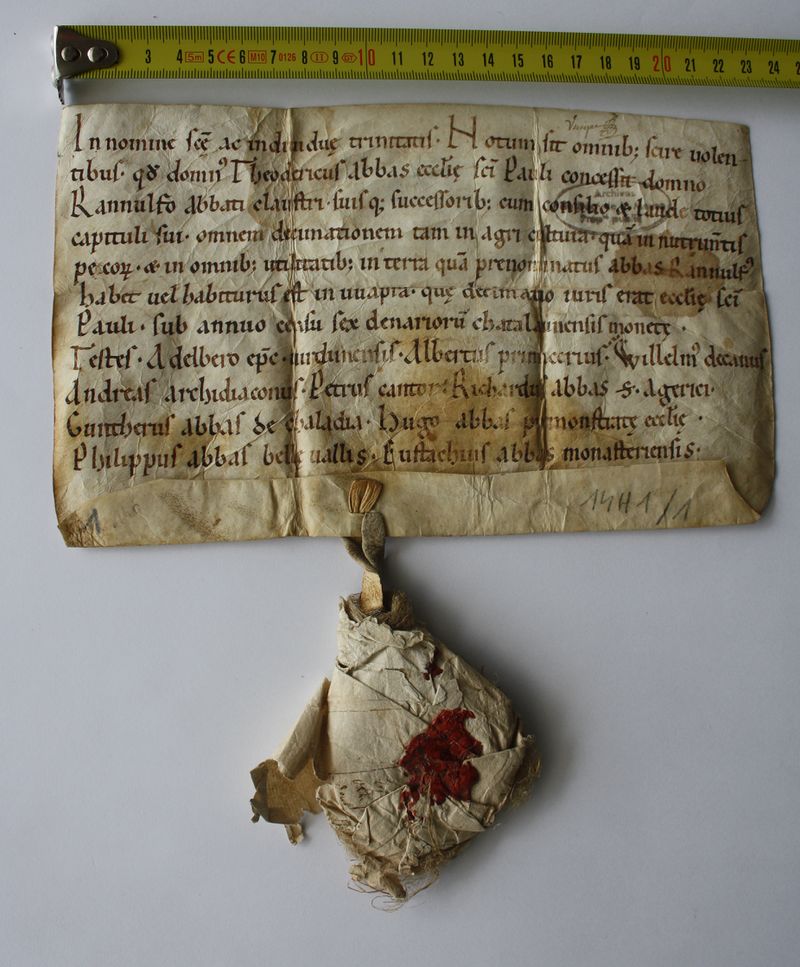 3 4 5m 5 CE 6 M10 7 0126 8 II 9 10 11 12 13 14 15 16 17 18 19 20 21 22 23 24
In nomine scę ac individuę trinitatis. Notum sit omnib; scire uolen-
tibus. qđ domn' Theodericus abbas ecclię sci Pauli concessit domno
Rannulfo abbati claustri suisq; successorib; cum consilio & laude totius
capituli sui. omnem decimationem tam in agri cultura quā in nutrimtis
pecoꝝ. & in omnib; utilitatib; in terra quā prenominatus abbas Rannulf'
habet uel habiturus est in uuapra. quę decimatio iuris erat ecclię sci
Pauli. sub annuo censu sex denarioru catalaunensis monetę.
Testes. Adelbero epc uirdunensis. Albertus primicerius. Willelm' decanus
Andreas archidiaconus. Petrus cantor. Richardus abbas S. Agerici.
Guntherus abbas de chaladia. Hugo abbas pmonstratę ecclię.
Philippus abbas bellę uallis. Eustachius abbas monasteriensis.
1.
14H1/1